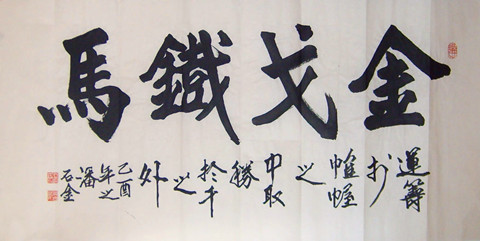 金戈鐵馬
運籌
於
帷幄
之
中取
勝
於千
之
外
乙酉
年之
潘
石金